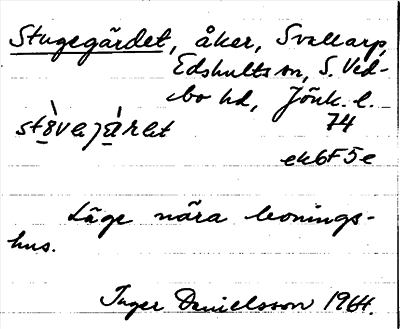 Stugegärdet, åker, Svallarp,
Edshults sn, S. Ved-
bo hd, Jönk. l.
74
ek6F5e
Läge nära bonings-
hus.
Inger Danielsson 1964.